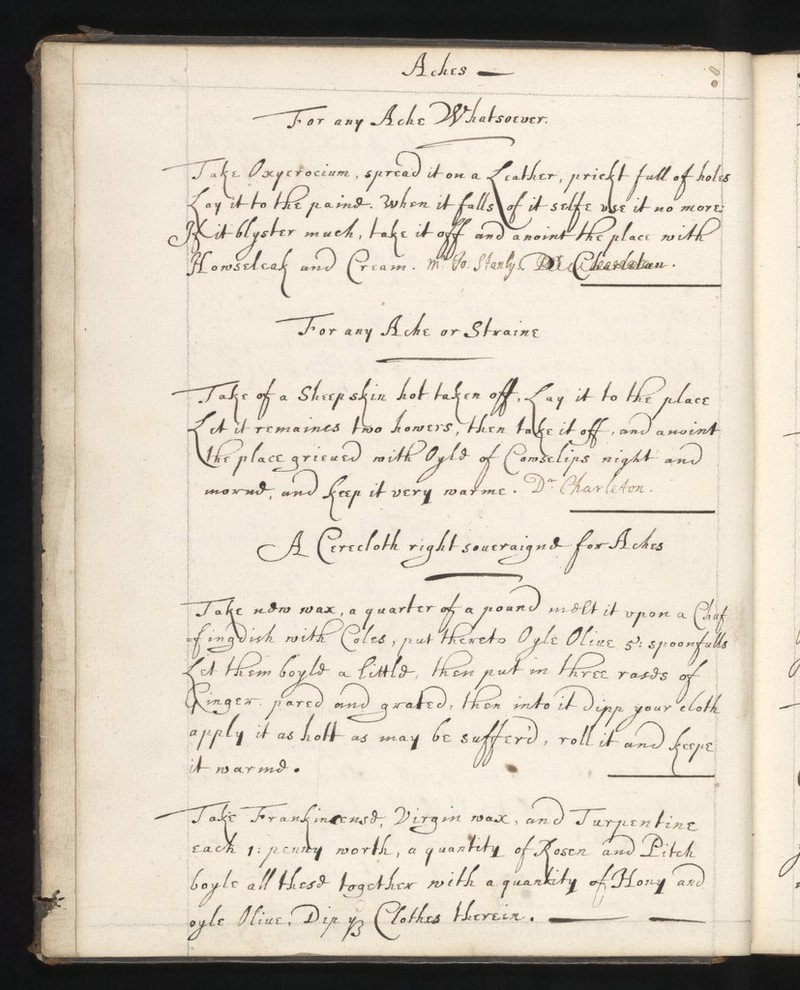 Aches
For any Ache Whatsoever.
Take Oxycrocium, spread it on a Leather, prickt full of holes
Lay it to the paine. When it falls of it selfe use it no more;
If it blyster much, take it off and anoint the place with
Howseleak and Cream. Mr Jo. Stanly.
For any Ache or Straine
Take of a Sheepskin hot taken off, Lay it to the place
Let it remaines two howers, then take it off, and anoint
the place grieued with Oyle of Cowselips night and
morne, and keep it very warme. Dr Charleton.
A Cerecloth right soueraigne for Aches
Take new wax, a quarter of a pound melt it upon a Chaf
=fingdish with Coles, put thereto Oyle Oliue 5: spoonfulls
Let them boyle a little, then put in three rases of
Ginger. pared and grated, then into it Dipp your cloth
apply it as hott as may be suffer'd, roll it and keepe
it warme.
Take Frankincense, Virgin wax, and Turpentine
each 1: penny worth, a quantity of Rosen and Pitch
boyle all these together with a quantity of Hony and
oyle Oliue. Dip yr Clothes therein.